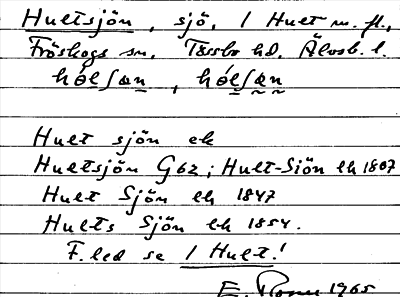 Hultsjön, sjö, 1 Hult m. fl.,
Fröskogs sn. Tössbo hd. Älvsb. l.
hól∫ən, hól∫ən
Hult sjön ek
Hultsjön G62; Hult-Siön lk 1807
Hult Sjön lk 1847
Hults Sjön lk 1854.
F.led se 1 Hult!
E. 1965